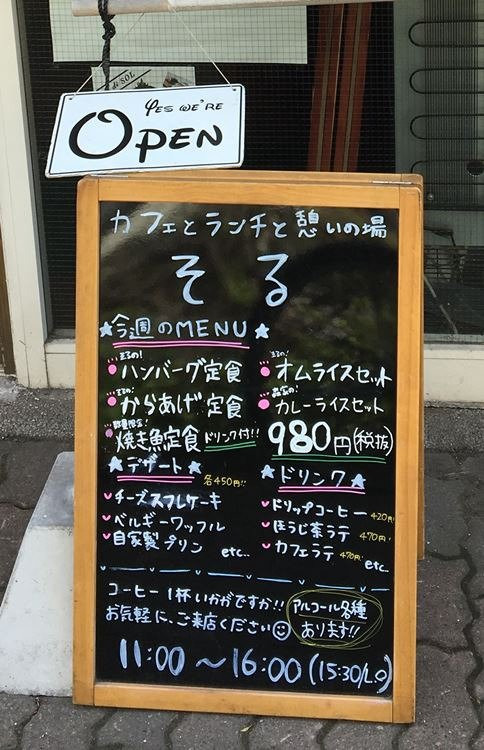 di SOL
YES WE'RE
OPEN
カフェとランチと憩いの場
そる
★今週のMENU★
そるの!
ハンバーグ定食
そるの!
からあげ定食
数量限定!
焼き魚定食 ドリンク付!!
そるの!
オムライスセット
カレーライスセット
980円(税抜)
★デザート★
各450円!!
チーズスフレケーキ
ベルギーワッフル
自家製プリン etc..
★ドリンク★
ドリップコーヒー 420円!
ほうじ茶ラテ 470円!
カフェラテ 470円!
etc..
コーヒー1杯いかがですか!!
お気軽に、ご来店ください☺
アルコール各種
あります!!
11:00〜16:00(15:30/L.O)